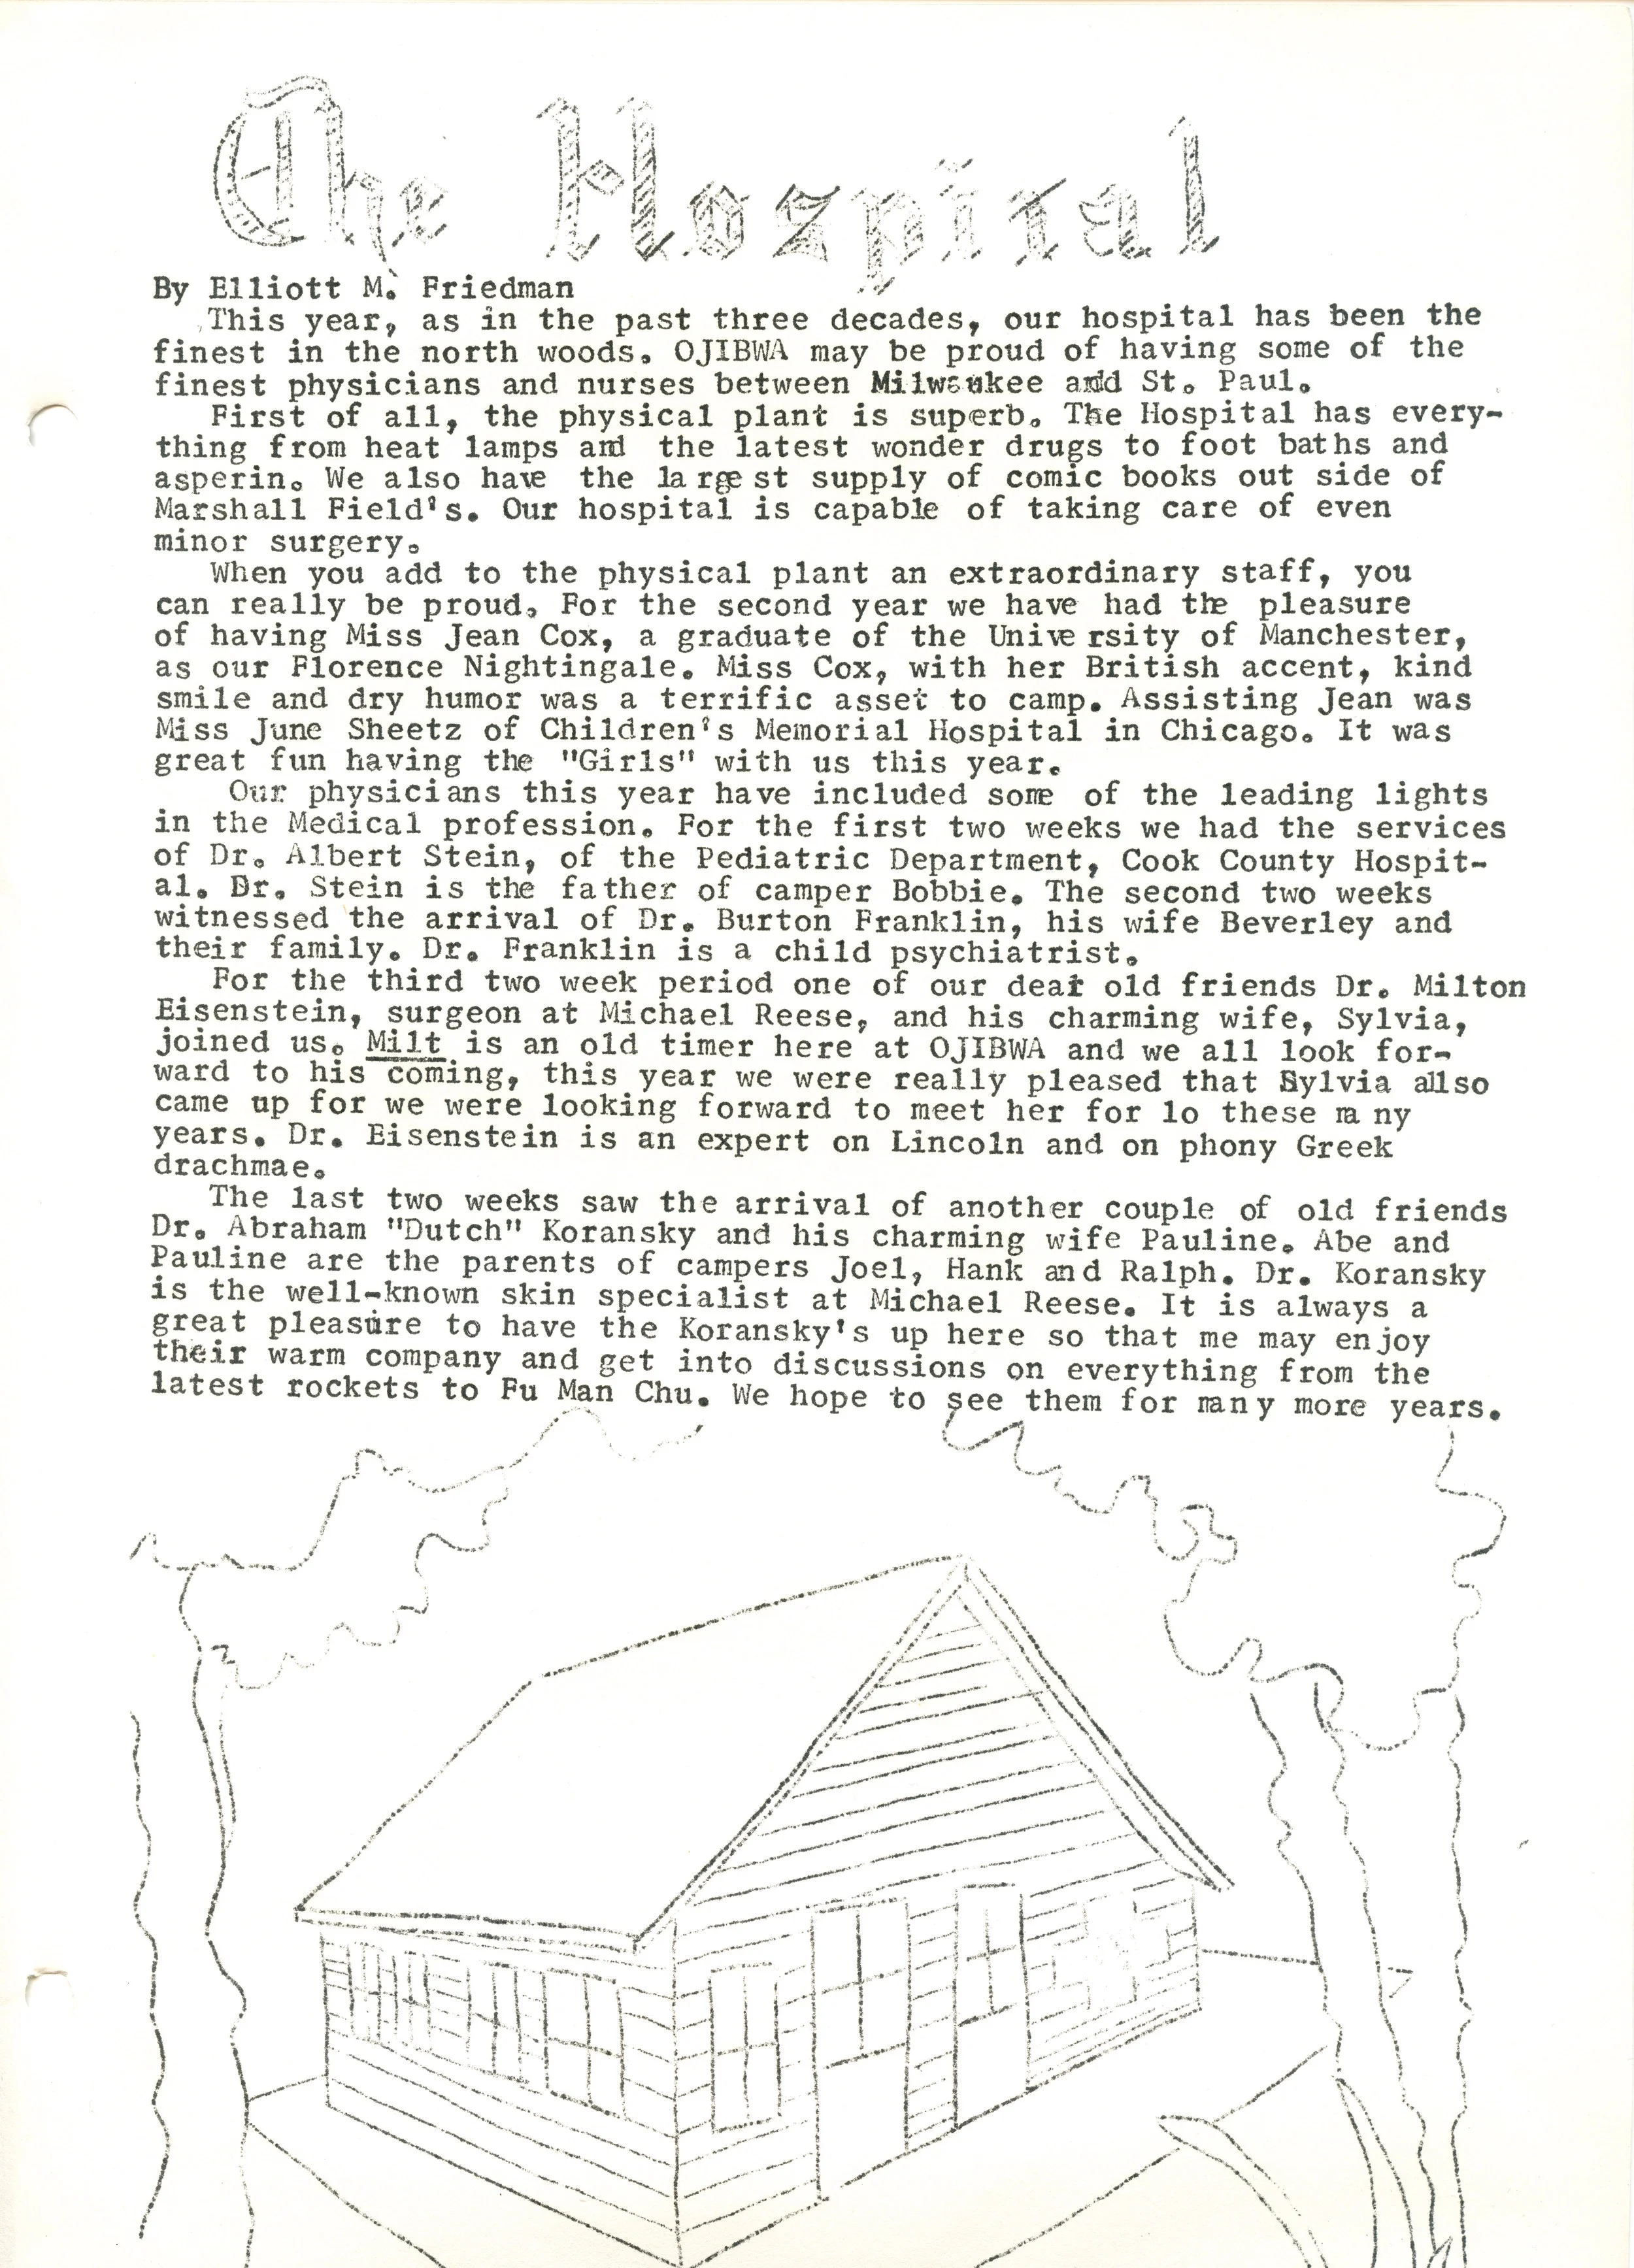 The Hospital
By Elliott M. Friedman
This year, as in the past three decades, our hospital has been the
finest in the north woods. OJIBWA may be proud of having some of the
finest physicians and nurses between Milwaukee and St. Paul.
First of all, the physical plant is superb. The Hospital has every-
thing from heat lamps and the latest wonder drugs to foot baths and
asperin. We also have the largest supply of comic books out side of
Marshall Field's. Our hospital is capable of taking care of even
minor surgery.
When you add to the physical plant an extraordinary staff, you
can really be proud, For the second year we have had the pleasure
of having Miss Jean Cox, a graduate of the University of Manchester,
as our Florence Nightingale. Miss Cox, with her British accent, kind
smile and dry humor was a terrific asset to camp. Assisting Jean was
Miss June Sheetz of Children's Memorial Hospital in Chicago. It was
great fun having the "Girls" with us this year.
Our physicians this year have included some of the leading lights
in the Medical profession. For the first two weeks we had the services
of Dr. Albert Stein, of the Pediatric Department, Cook County Hospit-
al. Dr. Stein is the father of camper Bobbie. The second two weeks
witnessed the arrival of Dr. Burton Franklin, his wife Beverley and
their family. Dr. Franklin is a child psychiatrist.
For the third two week period one of our dear old friends Dr. Milton
Eisenstein, surgeon at Michael Reese, and his charming wife, Sylvia,
joined us. Milt is an old timer here at OJIBWA and we all look for-
ward to his coming, this year we were really pleased that Sylvia allso
came up for we were looking forward to meet her for lo these many
years. Dr. Eisenstein is an expert on Lincoln and on phony Greek
drachmae.
The last two weeks saw the arrival of another couple of old friends
Dr. Abraham "Dutch" Koransky and his charming wife Pauline. Abe and
Pauline are the parents of campers Joel, Hank and Ralph. Dr. Koransky
is the well-known skin specialist at Michael Reese. It is always a
great pleasure to have the Koransky's up here so that me may enjoy
their warm company and get into discussions on everything from the
latest rockets to Fu Man Chu. We hope to see them for many more years.